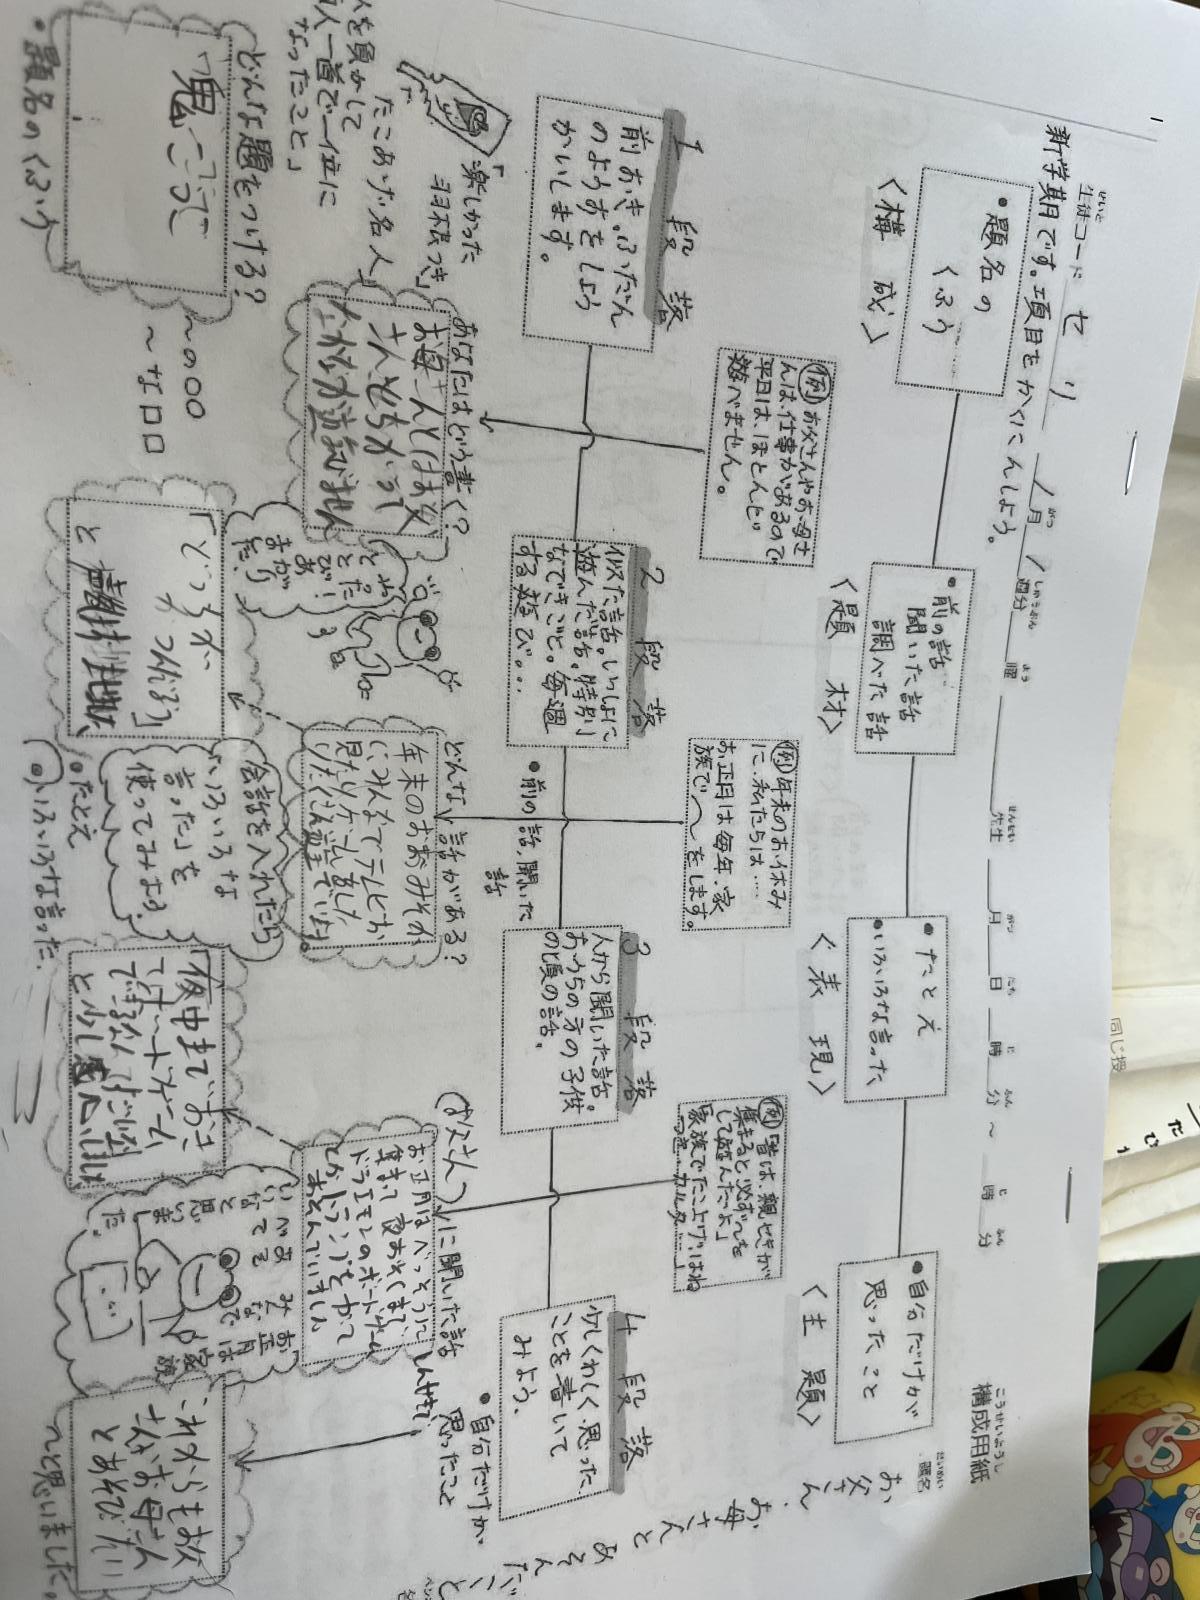 構成用紙
こうせいようし
生徒コード セリ
せいと
1月1週分 曜 先生 月 日 時 分 ～ 時 分
新学期です。項目をかくにんしよう。
題名
だいめい
お父さん、
お母さんと
あそんだこと
・題名の
くふう
〈構成〉
・前の話
聞いた話
調べた話
〈題材〉
・たとえ
・いろいろな言った
〈表現〉
・自分だけが
思ったこと
〈主題〉
1段落
前おき。ふだん
のようすをしょう
かいします。
例 お父さんやお母さ
んは、仕事があるので
平日は、ほとんど
遊べません。
あなたはどう書く?
お母さんとはお父
さんとちがって
2段落
似た話。いっしょに
遊んだ話。特別
なできごと。毎週
する遊び…
例 年末のお休み
に、私たちは…
お正月は毎年、家
族で～をします。
・前の話、聞いた
話
どんな話がある?
年末のおおみそか
にみんなでテレビか
見たりゲームをした
3段落
人から聞いた話。
おうちの方の子供
の頃の話。
例 「昔は、親せきが
集まると必ず～を
して遊んだよ」
「家族でたこ上げ、はね
つき、カルタ……」
(お父さん)に聞いた話
お正月は
集まって夜おそくまで、
ドラエモンのボードゲーム
とかトランプをやって
あそんでいました
4段落
少しくわしく思った
ことを書いて
みよう。
・自分だけが、
思ったこと
これからもお父
さんお母さん
とあそびたい
～と思いました。
「楽しかった
羽根つき」
「たこあげ名人」
人を負かして
人一首で一位に
なったこと」
どんな題をつける?
「鬼ごっこ
・題名のくふう
～の〇〇
～な口口
やっ
とだ
とび
あ
まが
った
「どっちが
かつんだろう」
と
会話を入れたら
「いろいろな
言った」を
使ってみよう
・たとえ
・いろいろな言った。
「夜中までおき
てボードゲーム
できるなんて
と少し
お正月は
家族
みんなで
いいなと
思いま
した。
同じ授